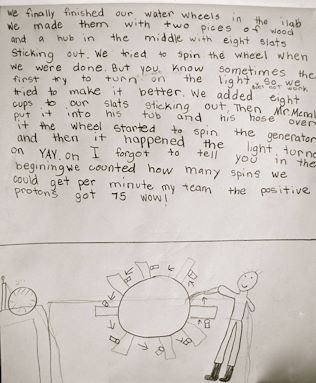 We finally finished our water wheels in the ilab
We made them with two pices of wood
and a hub in the middle with eight slats
Sticking out. We tried to spin the wheel when
we were done. But you know sometimes the
first try to turn on the light. So we
does not work
tried to make it better. We added eight
cups to our slats sticking out. Then Mr. Mcnal
put it into his tub and his hose over
it the wheel started to spin the generator
and then it happened the light turn
on YAY. on I forgot to tell you in the
begining we counted how many spins we
could get per minute my team the positive
protons got 75 wow!